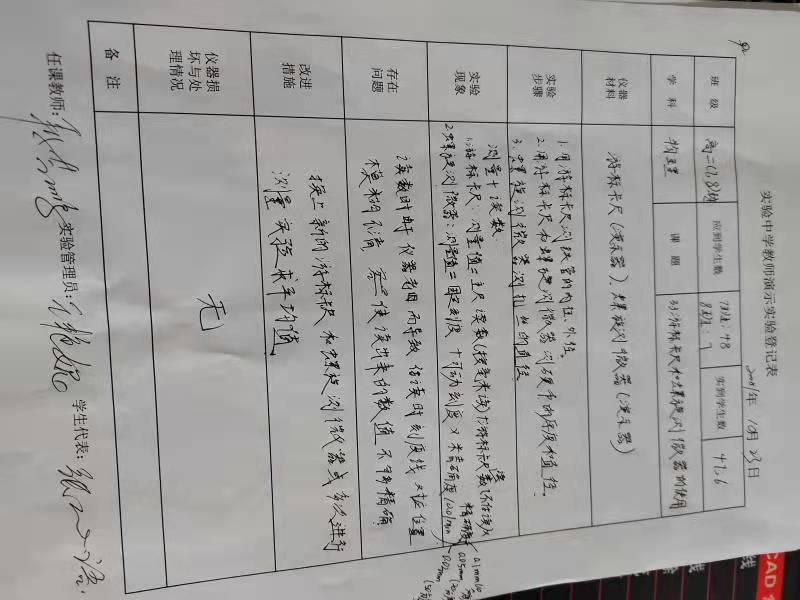 实验中学教师演示实验登记表
10月28日
班级 高二(7,8)班 应到学生数 7班:48 实到学生数 47,6
8班:7
学科 物理 课题 33:游标卡尺和螺旋测微器的使用
仪器材料 游标卡尺(演示器)、螺旋测微器(演示器)
实验步骤 1.用游标卡尺测铁管的内径、外径。
2.用游标卡尺和螺旋测微器测硬币的厚度和直径。
3.螺旋测微器测扭丝的直径。
实验现象 测量+读数
1.游标卡尺:测量值=主尺读数(按毫米读)+游标尺数(不估读)×精确度
0.1mm(10分)
0.05mm(20分)
0.02mm(50分)
2.螺旋测微器:测量值=固定刻度+可动刻度×精确度(0.01mm)
存在问题 读数时由于仪器老旧而导致估读时刻度线对应位置
模糊不清,容易使读出来的数值不够精确
改进措施 换上新的游标卡尺和螺旋测微器或多次进行
测量实验求平均值
仪器损坏与处理情况 无
备注
任课教师: 实验管理员: 学生代表:
CAD
线
线